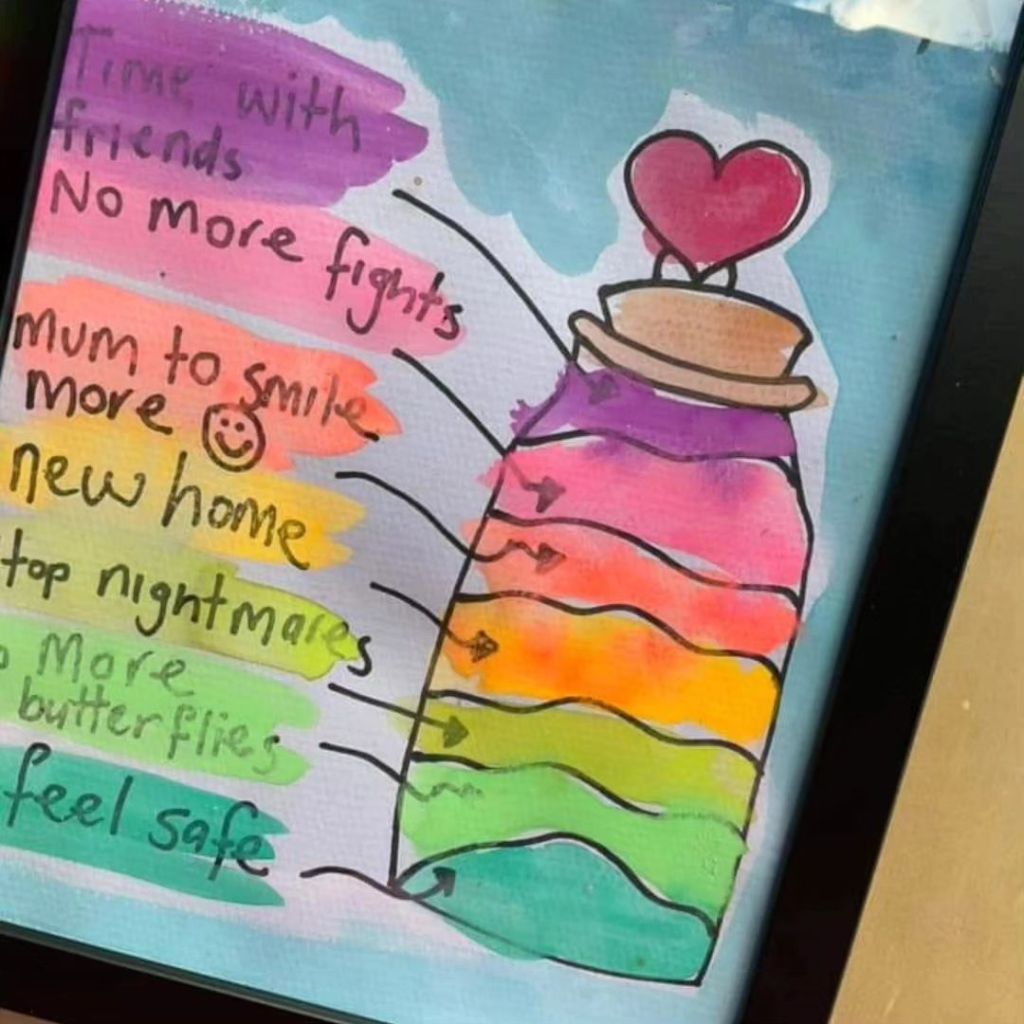 Time with
friends
No more fights
mum to smile
more
new home
top nightmares
More
butterflies
feel safe